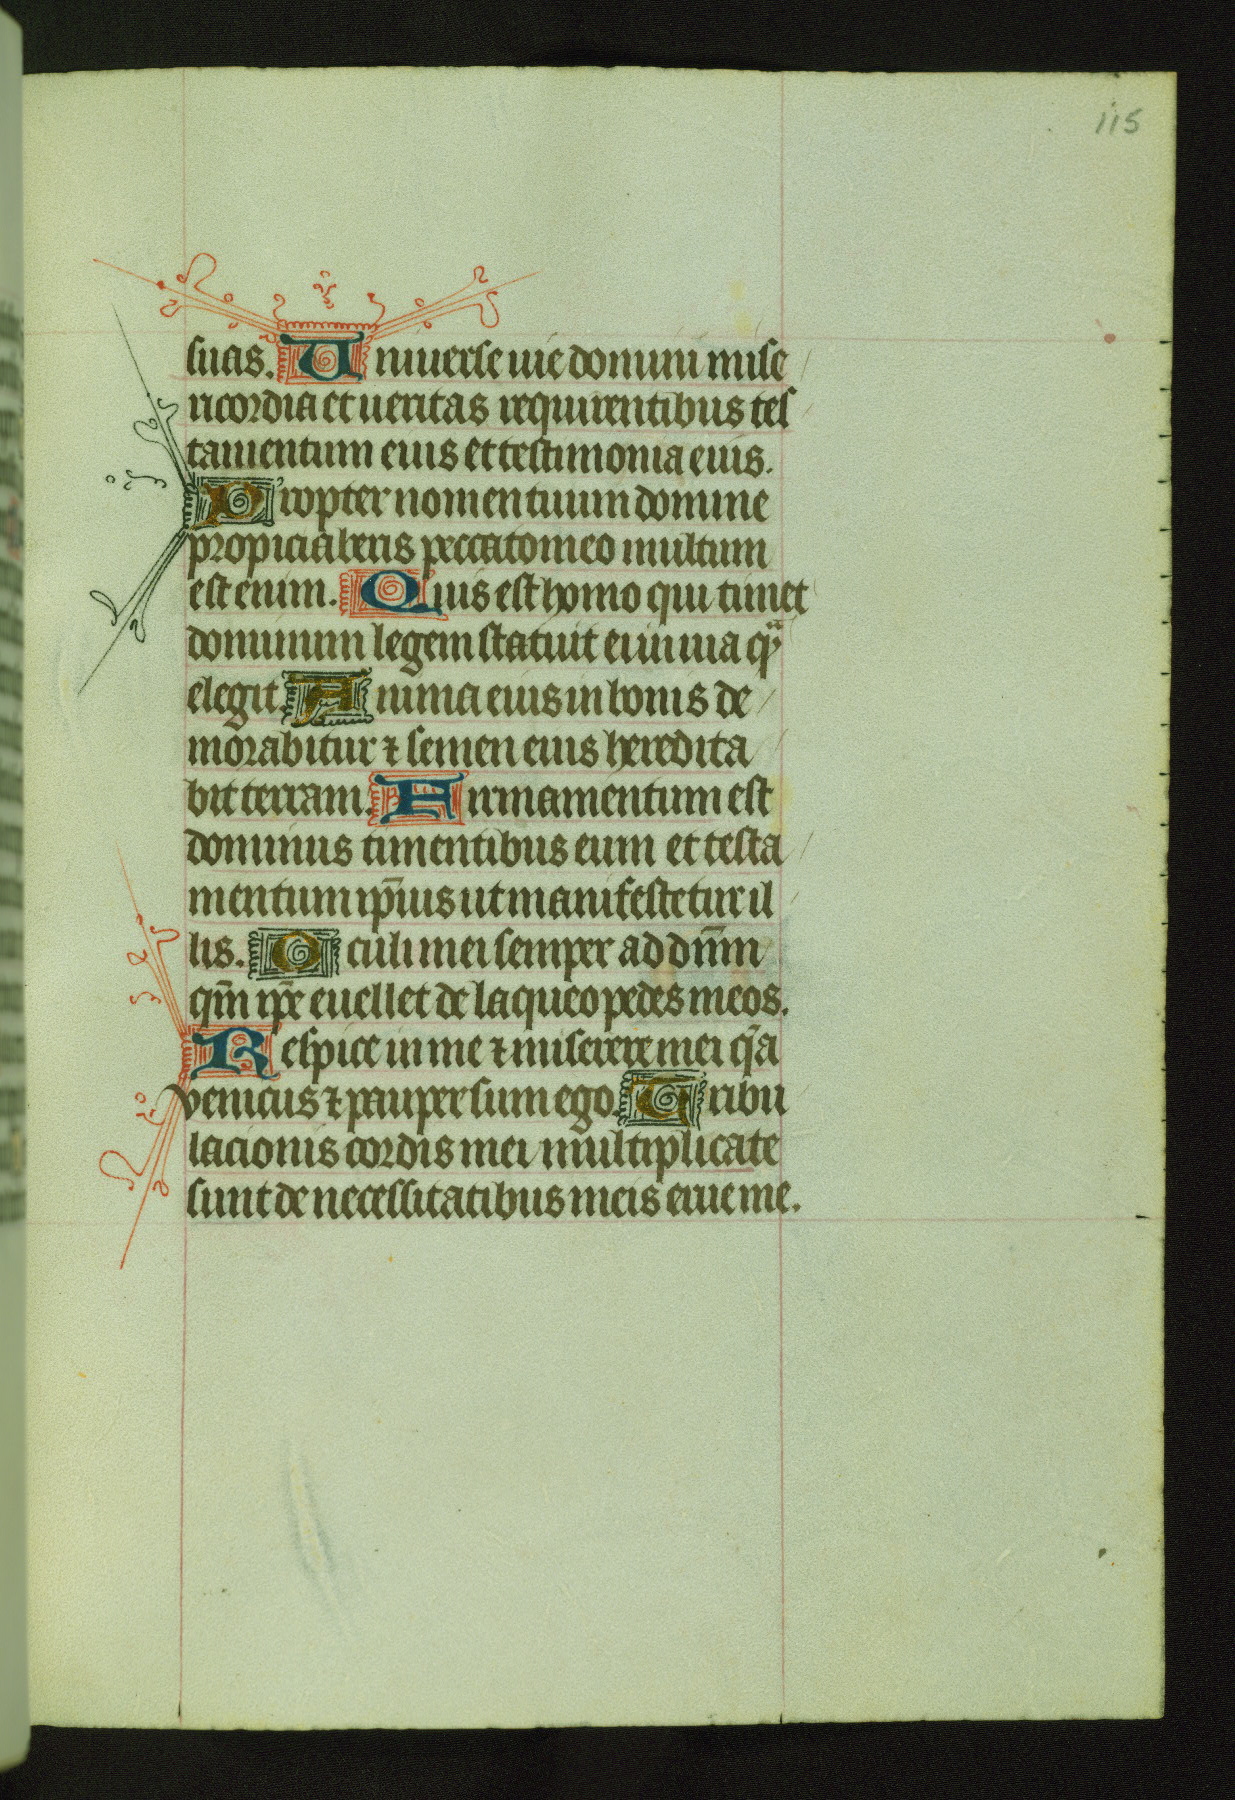 115
suas. Uniuerse uie domini mise
ricordia et ueritas requirentibus tes
tamentum eius et testimonia eius.
Propter nomen tuum domine
propiciaberis peccato meo multum
est enim. Quis est homo qui timet
dominum legem statuit ei in uia qͣ
elegit. Anima eius in bonis de
morabitur ⁊ semen eius heredita
bit terram. Firmamentum est
dominus timentibus eum et testa
mentum ip̄ius ut manifestetur il
lis. Oculi mei semper ad dn̄m
qm̄ ip̄e euellet de laqueo pedes meos.
Respice in me ⁊ miserere mei q̄a
venicus ⁊ pauper sum ego. Tribu
lacionis cordis mei multiplicate
sunt de necessitatibus meis erue me.